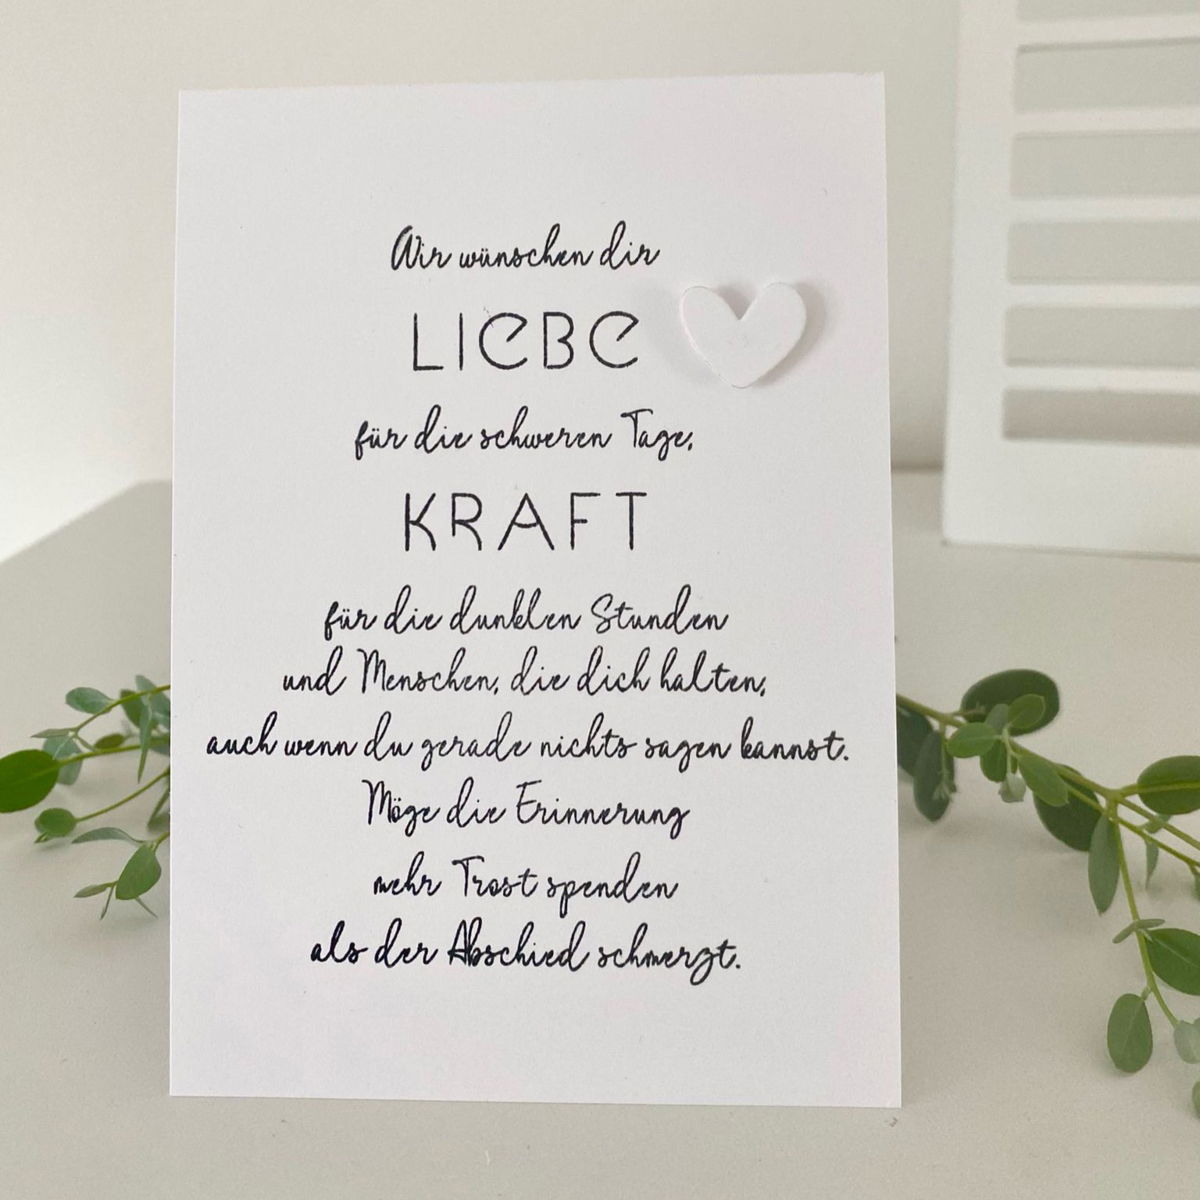 Wir wünschen dir
LIEBE
für die schweren Tage,
KRAFT
für die dunklen Stunden
und Menschen, die dich halten,
auch wenn du gerade nichts sagen kannst.
Möge die Erinnerung
mehr Trost spenden
als der Abschied schmerzt.